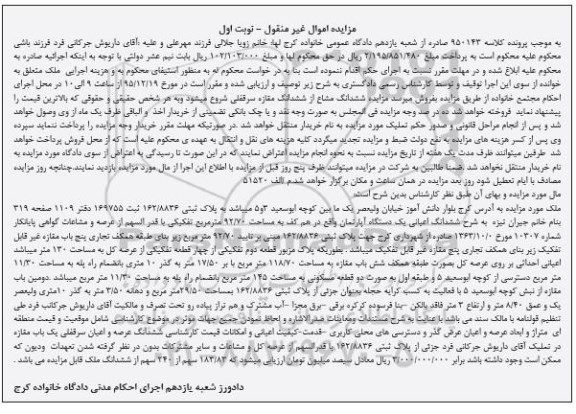 مزایده اموال غیر منقول – نوبت اول
به موجب پرونده کلاسه ۹۵۰۱۴۳ صادره از شعبه یازدهم دادگاه عمومی خانواده کرج لها: خانم زویا جلالی فرزند مهرعلی و علیه :آقای داریوش جرکانی فرد فرزند باشی
محکوم علیه محکوم است به پرداخت مبلغ ۲/۱۹۵/۸۵۱/۴۸۰ ریال در حق محکوم لها و مبلغ ۱۰۲/۱۰۳/۰۰۰ ریال بابت نیم عشر دولتی با توجه به اینکه اجرائیه صادره به
محکوم علیه ابلاغ شده و در مهلت مقرر نسبت به اجرای حکم اقدام ننموده است بنا به در خواست محکوم له به منظور استیفای محکوم به و هزینه اجرایی ملک متعلق به
خوانده از سوی این اجرا توقیف و توسط کارشناس رسمی دادگستری به شرح زیر توصیف و ارزیابی شده و مقرر است در مورخ ۹۵/۱۲/۱۹ از ساعت ۹ الی ۱۰ در محل اجرای
احکام مجتمع خانواده از طریق مزایده بفروش میرسد مزایده ششدانگ مشاع از ششدانگ مغازه سرقفلی شروع میشود وبه هر شخص حقیقی و حقوقی که بالاترین قیمت را
پیشنهاد نماید فروخته خواهد شد ده در صد وجه مزایده فی المجلس به صورت وجه نقد و یا چک بانکی تضمینی از خریدار اخذ و الباقی ظرف یک ماه از وی وصول خواهد
شد و پس از انجام مراحل قانونی و صدور حکم تملیک مورد مزایده به نام خریدار منتقل خواهد شد .در صورتیکه مهلت مقرر خریدار وجه مزایده را پرداخت ننماید سپرده
وی پس از کسر هزینه های مزایده به نفع دولت ضبط و مزایده تجدید میگردد کلیه هزینه های نقل و انتقال به عهده ی محکوم علیه است که از محل فروش پرداخت خواهد
شد طرفین میتوانند ظرف مدت یک هفته از تاریخ مزایده نسبت به نحوه انجام مزایده اعتراض نمایند که در این صورت تا رسیدگی به اعتراض از سوی دادگاه مورد مزایده به
نام خریدار منتقل نخواهد شد .ضمنا طالبین به شرکت در مزایده میتوانند ظرف پنج روز قبل از مزایده با اطلاع این اجرا از مال مورد مزایده بازدید نمایند.چنانچه روز مزایده
مصادف با ایام تعطیل شود روز بعد مزایده در همان ساعت و مکان برگزار خواهد شد.م الف ۵۱۵۲۰
مال مورد مزایده و بهای آن طبق نظر کارشناس بدین شرح است:
ملک مورد مزایده به آدرس کرج بلوار دانش آموز خیابان ولیعصر یک ما بین کوچه ابوسعید ۳و۵ میباشد به پلاک ثبتی ۱۶۲/۸۸۳۶ ثبت ۱۶۹۷۵۵ دفتر ۱۱۰۹ صفحه ۳۱۹
بنام خانم جیران تیزه، به شرح ششدانگ اعیانی یک دستگاه آپارتمان واقع در هم کف به مساحت ۹۲/۷۰ مترمربع تفکیکی با قدر السهم از عرصه و مشاعات گواهی پایانکار
شماره ۱۰۳۰۷ مورخ ۱۲۶۳/۱۰/۰ صادره از شهرداری کرج جهت پلاک ثبتی ۱۶۲/۸۸۳۶ مبنی بر تائید ۹۲/۷۰ متر مربع زیر بنای طبقه همکف تجاری پنج باب مغازه غیر قابل
تفکیک زیر بنای همکف تجاری پنج مغازه غیر قابل تفکیک میباشد. بطوریکه پلاک مزبور قطعه دوم تفکیکی از چهار قطعه تفکیکی از عرصه کل به مساحت ۱۳۰ متر میباشد
اعیانی احداثی بر روی عرصه کل بصورت طبقه همکف شش باب مغازه به مساحت ۱۱۸/۷۰ متر مربع با بر ۱۷/۵۰ متر به گذر ۱۰ متری بانضمام راه پله به مساحت ۱۱/۳۰
متر مربع دسترسی از کوچه ابوسعید ۵ و طبقه اول به صورت دو قطعه مسکونی به مساحت ۱۴۵ متر مربع بانضمام راه پله به مساحت ۱۱/۳۰ متر مربع میباشد .دومین باب
مغازه از نبش کوچه ابوسعید ۵ با فعالیت به کسب کرایه حجله بعنوان جزئی از پلاک ثبتی ۱۶۲/۸۸۳۶ بمساحت ۲۹/۵۰مترمربع و دهانه ۳/۵۰ متر به گذر ۱۰متری ولیعصر
یک و عمق ۸/۴۰ متر و ارتفاع ۳ متر فاقد بالکن –بنا فرسوده کرکره برقی –برق مجزا –آب مشترک و هم تراز پیاده رو تحت تصرف و مالکیت آقای داریوش جرکانی فرد طی
تنظیم قولنامه با مالک سند می باشد. با عنایت به شرح مستندات ومعاینات صدرالاشاره و لحاظ نمودن جمیع جهات موثر در موضوع کارشناسی شامل موقعیت و قیمت منطقه
ای متراژ و ابعاد عرصه و اعیان عرض گذر و دسترسی های محلی کاربری –قدمت-کیفیت اعیانی و امکانات قیمت کارشناسی ششدانگ عرصه و اعیان سرقفلی یک باب مغازه
در تملیک آقای داریوش جرکانی فرد جزئی از پلاک ثبتی ۱۶۲/۸۸۳۶ با قدرالسهم از عرصه کل و مشاعات و سایر مشترکات بدون در نظر گرفته شدن تعهدات ودیون که
ممکن است وجود داشته باشد برابر ۳/۰۰۰/۰۰۰/۰۰۰ ریال معادل سیصد میلیون تومان ارزیابی میشود که ۱۸۳/۸۳ سهم از ۲۴۰ سهم از ششدانگ ملک قابل مزایده می باشد .
دادورز شعبه یازدهم اجرای احکام مدنی دادگاه خانواده کرج